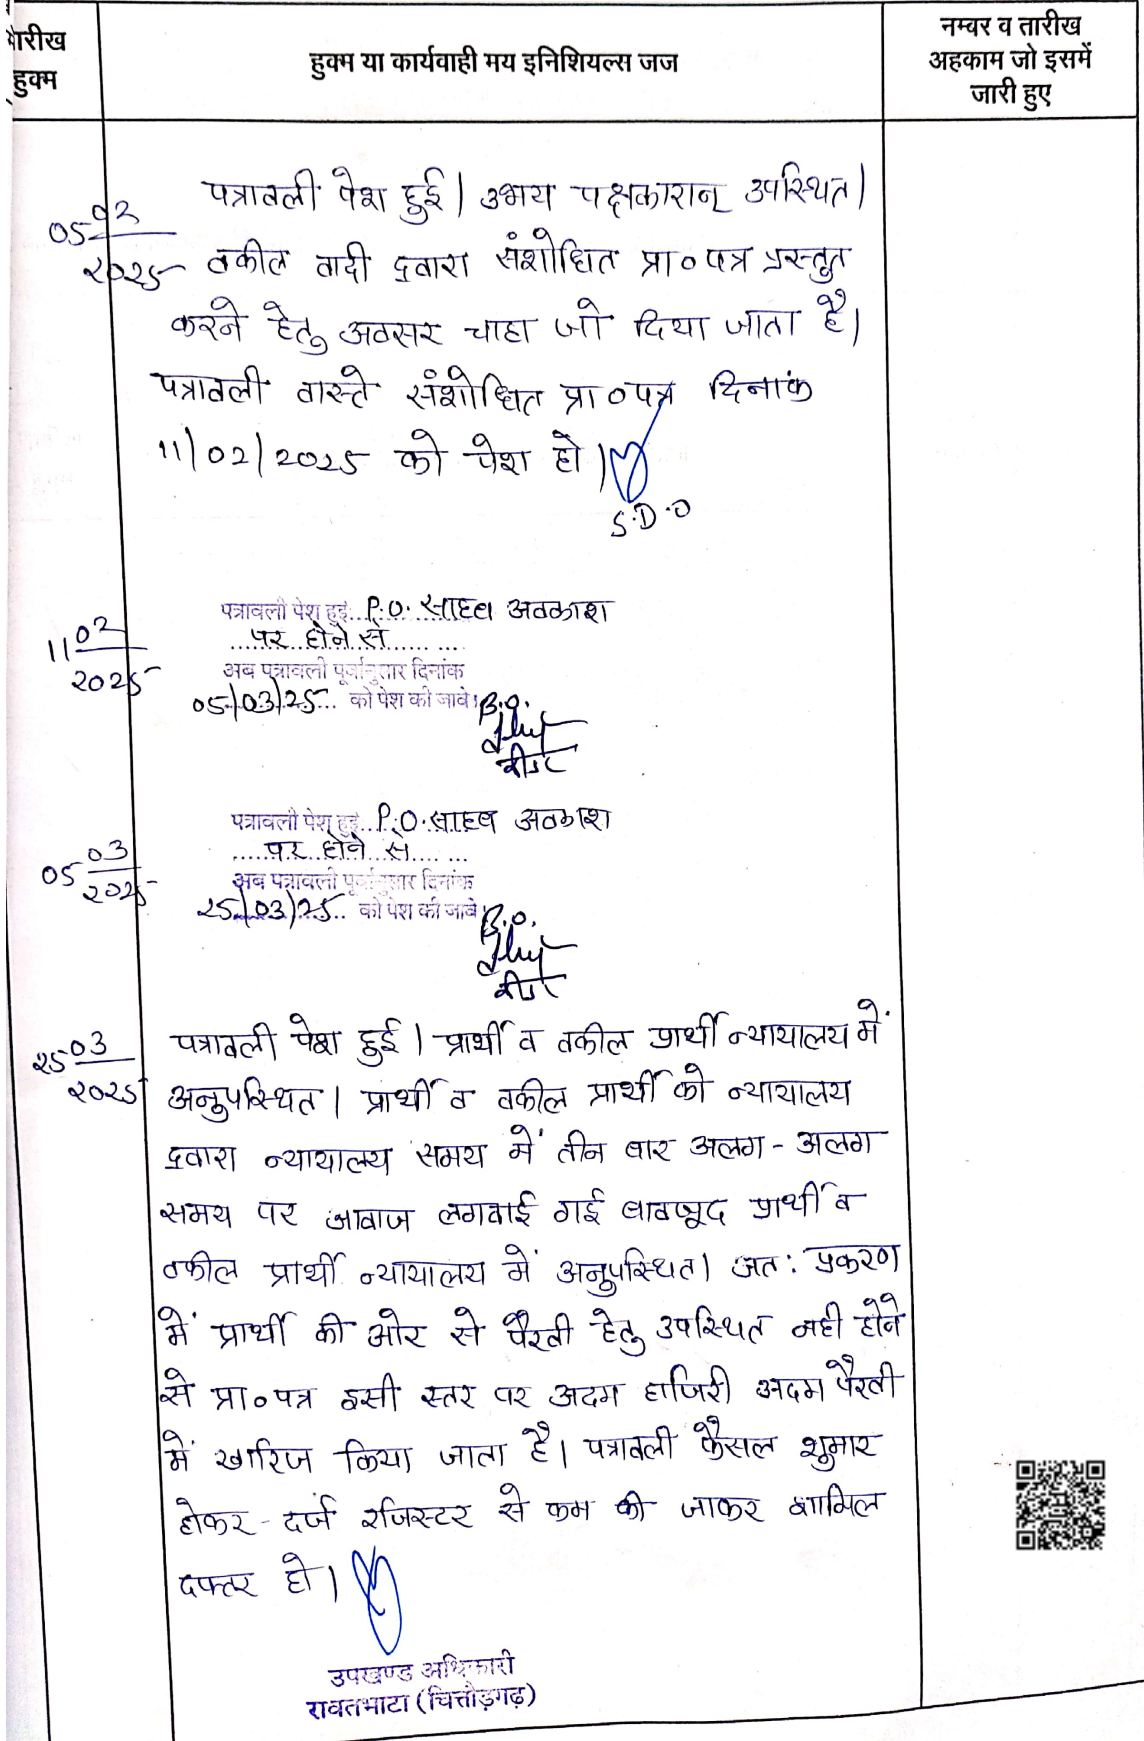 तारीख
हुक्म
हुक्म या कार्यवाही मय इनिशियल्स जज
नम्बर व तारीख
अहकाम जो इसमें
जारी हुए
05 02
2025
पत्रावली पेश हुई। उभय पक्षकारान् उपस्थित।
वकील वादी द्वारा संशोधित प्रा०पत्र प्रस्तुत
करने हेतु अवसर चाहा जो दिया जाता है।
पत्रावली वास्ते संशोधित प्रा०पत्र दिनांक
11/02/2025 को पेश हो।
S.D.O
11 02
2025
पत्रावली पेश हुई... P.O. साहब अवकाश
पर होने से
अब पत्रावली पूर्वानुसार दिनांक
05/03/25... को पेश की जावे।
B.O.
रीडर
05 03
2025
पत्रावली पेश हुई... P.O. साहब अवकाश
पर होने से
अब पत्रावली पूर्वानुसार दिनांक
25/03/25... को पेश की जावे
B.O.
रीडर
25 03
2025
पत्रावली पेश हुई। प्रार्थी व वकील प्रार्थी न्यायालय में
अनुपस्थित। प्रार्थी व वकील प्रार्थी को न्यायालय
द्वारा न्यायालय समय में तीन बार अलग-अलग
समय पर आवाज लगवाई गई बावजूद प्रार्थी व
वकील प्रार्थी न्यायालय में अनुपस्थित। अत: प्रकरण
में प्रार्थी की ओर से पैरवी हेतु उपस्थित नही होने
से प्रा०पत्र इसी स्तर पर अदम हाजिरी अदम पैरवी
में खारिज किया जाता है। पत्रावली फैसल शुमार
होकर - दर्ज रजिस्टर से कम की जाकर शामिल
दफ्तर हो।
उपखण्ड अधिकारी
रावतभाटा (चित्तौड़गढ़)